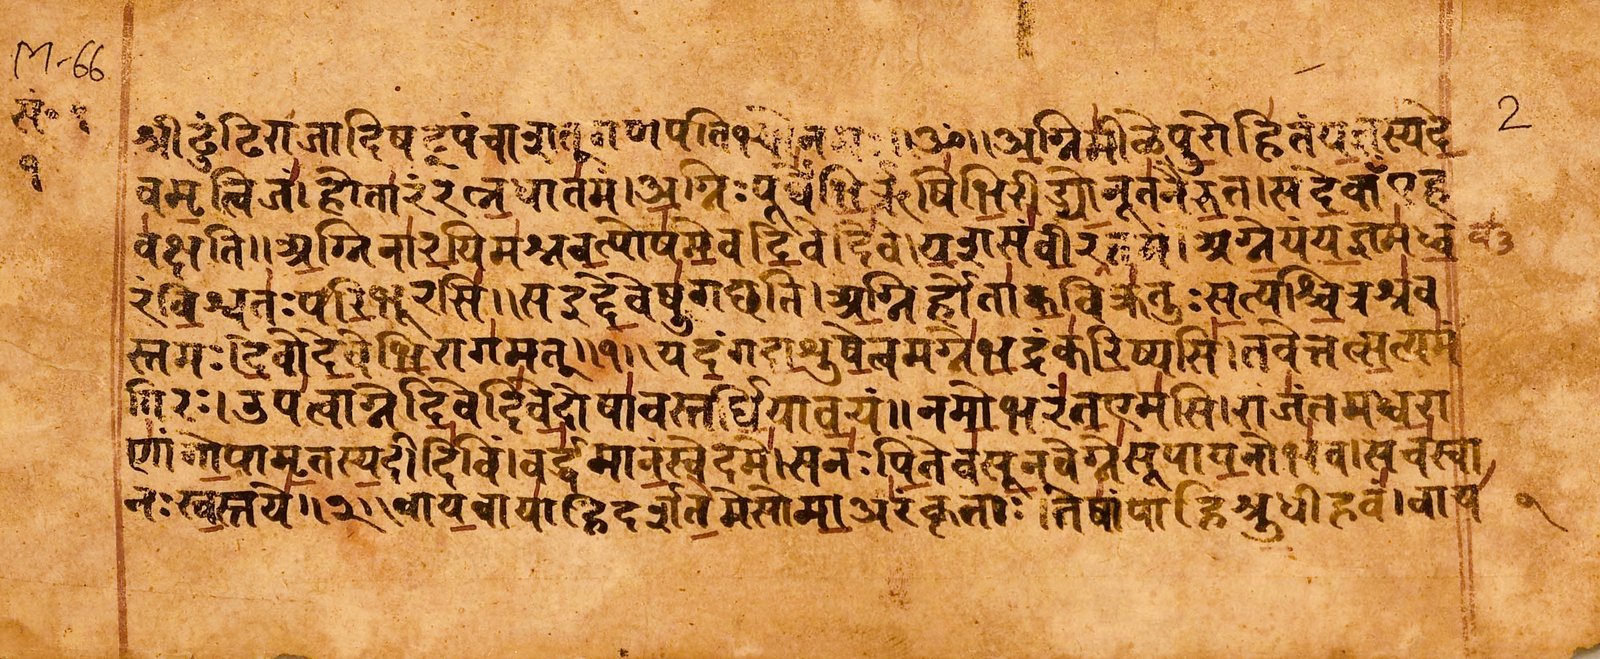 M-66
सं॰ १
१
2
श्रीढुंढिराजादिषट्पंचाशत् गणपतिभ्यो नमः ॥ॐ॥ अग्निमीळेपुरोहितंयज्ञस्यदे
वमृत्विजं।होतारंरत्नधातमं।अग्निःपूर्वेभिर्ऋषिभिरीड्योनूतनैरुत।सदेवाँएह
वक्षति॥अग्निनारयिमश्नवत्पोषमेवदिवेदिवे।यशसंवीरवत्तमं।अग्नेयंयज्ञमध्व
रंविश्वतःपरिभूरसि॥सइद्देवेषुगछति।अग्निर्होताकविक्रतुःसत्यश्चित्रश्रव
स्तमः।देवोदेवेभिरागमत्॥१॥यदंगदाशुषेत्वमग्नेभद्रंकरिष्यसि।तवेत्तत्सत्यमं
गिरः।उपत्वाग्नेदिवेदिवेदोषावस्तर्धियावयं॥नमोभरंतएमसि।राजंतमध्वरा
णांगोपामृतस्यदीदिविं।वर्द्धमानंस्वेदमे।सनःपितेवसूनवेग्नेसूपायनोभव।सचस्वा
नःस्वस्तये॥२॥वायवायाहिदर्शतेमेसोमाअरंकृताः।तेषांपाहिश्रुधीहवं।वाय